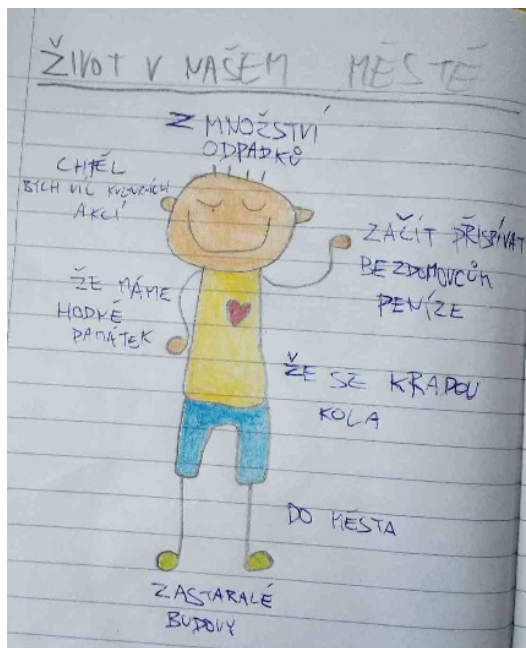 ŽIVOT V NAŠEM MĚSTĚ
Z MNOŽSTVÍ
ODPADKŮ
CHTĚL
BYCH VÍC KULTURNÍCH
AKCÍ
ZAČÍT PŘISPÍVAT
BEZDOMOVCŮM
PENÍZE
ŽE MÁME
HODKĚ
PAMÁTEK
ŽE SE KRADOU
KOLA
DO MĚSTA
ZASTARALÉ
BUDOVY